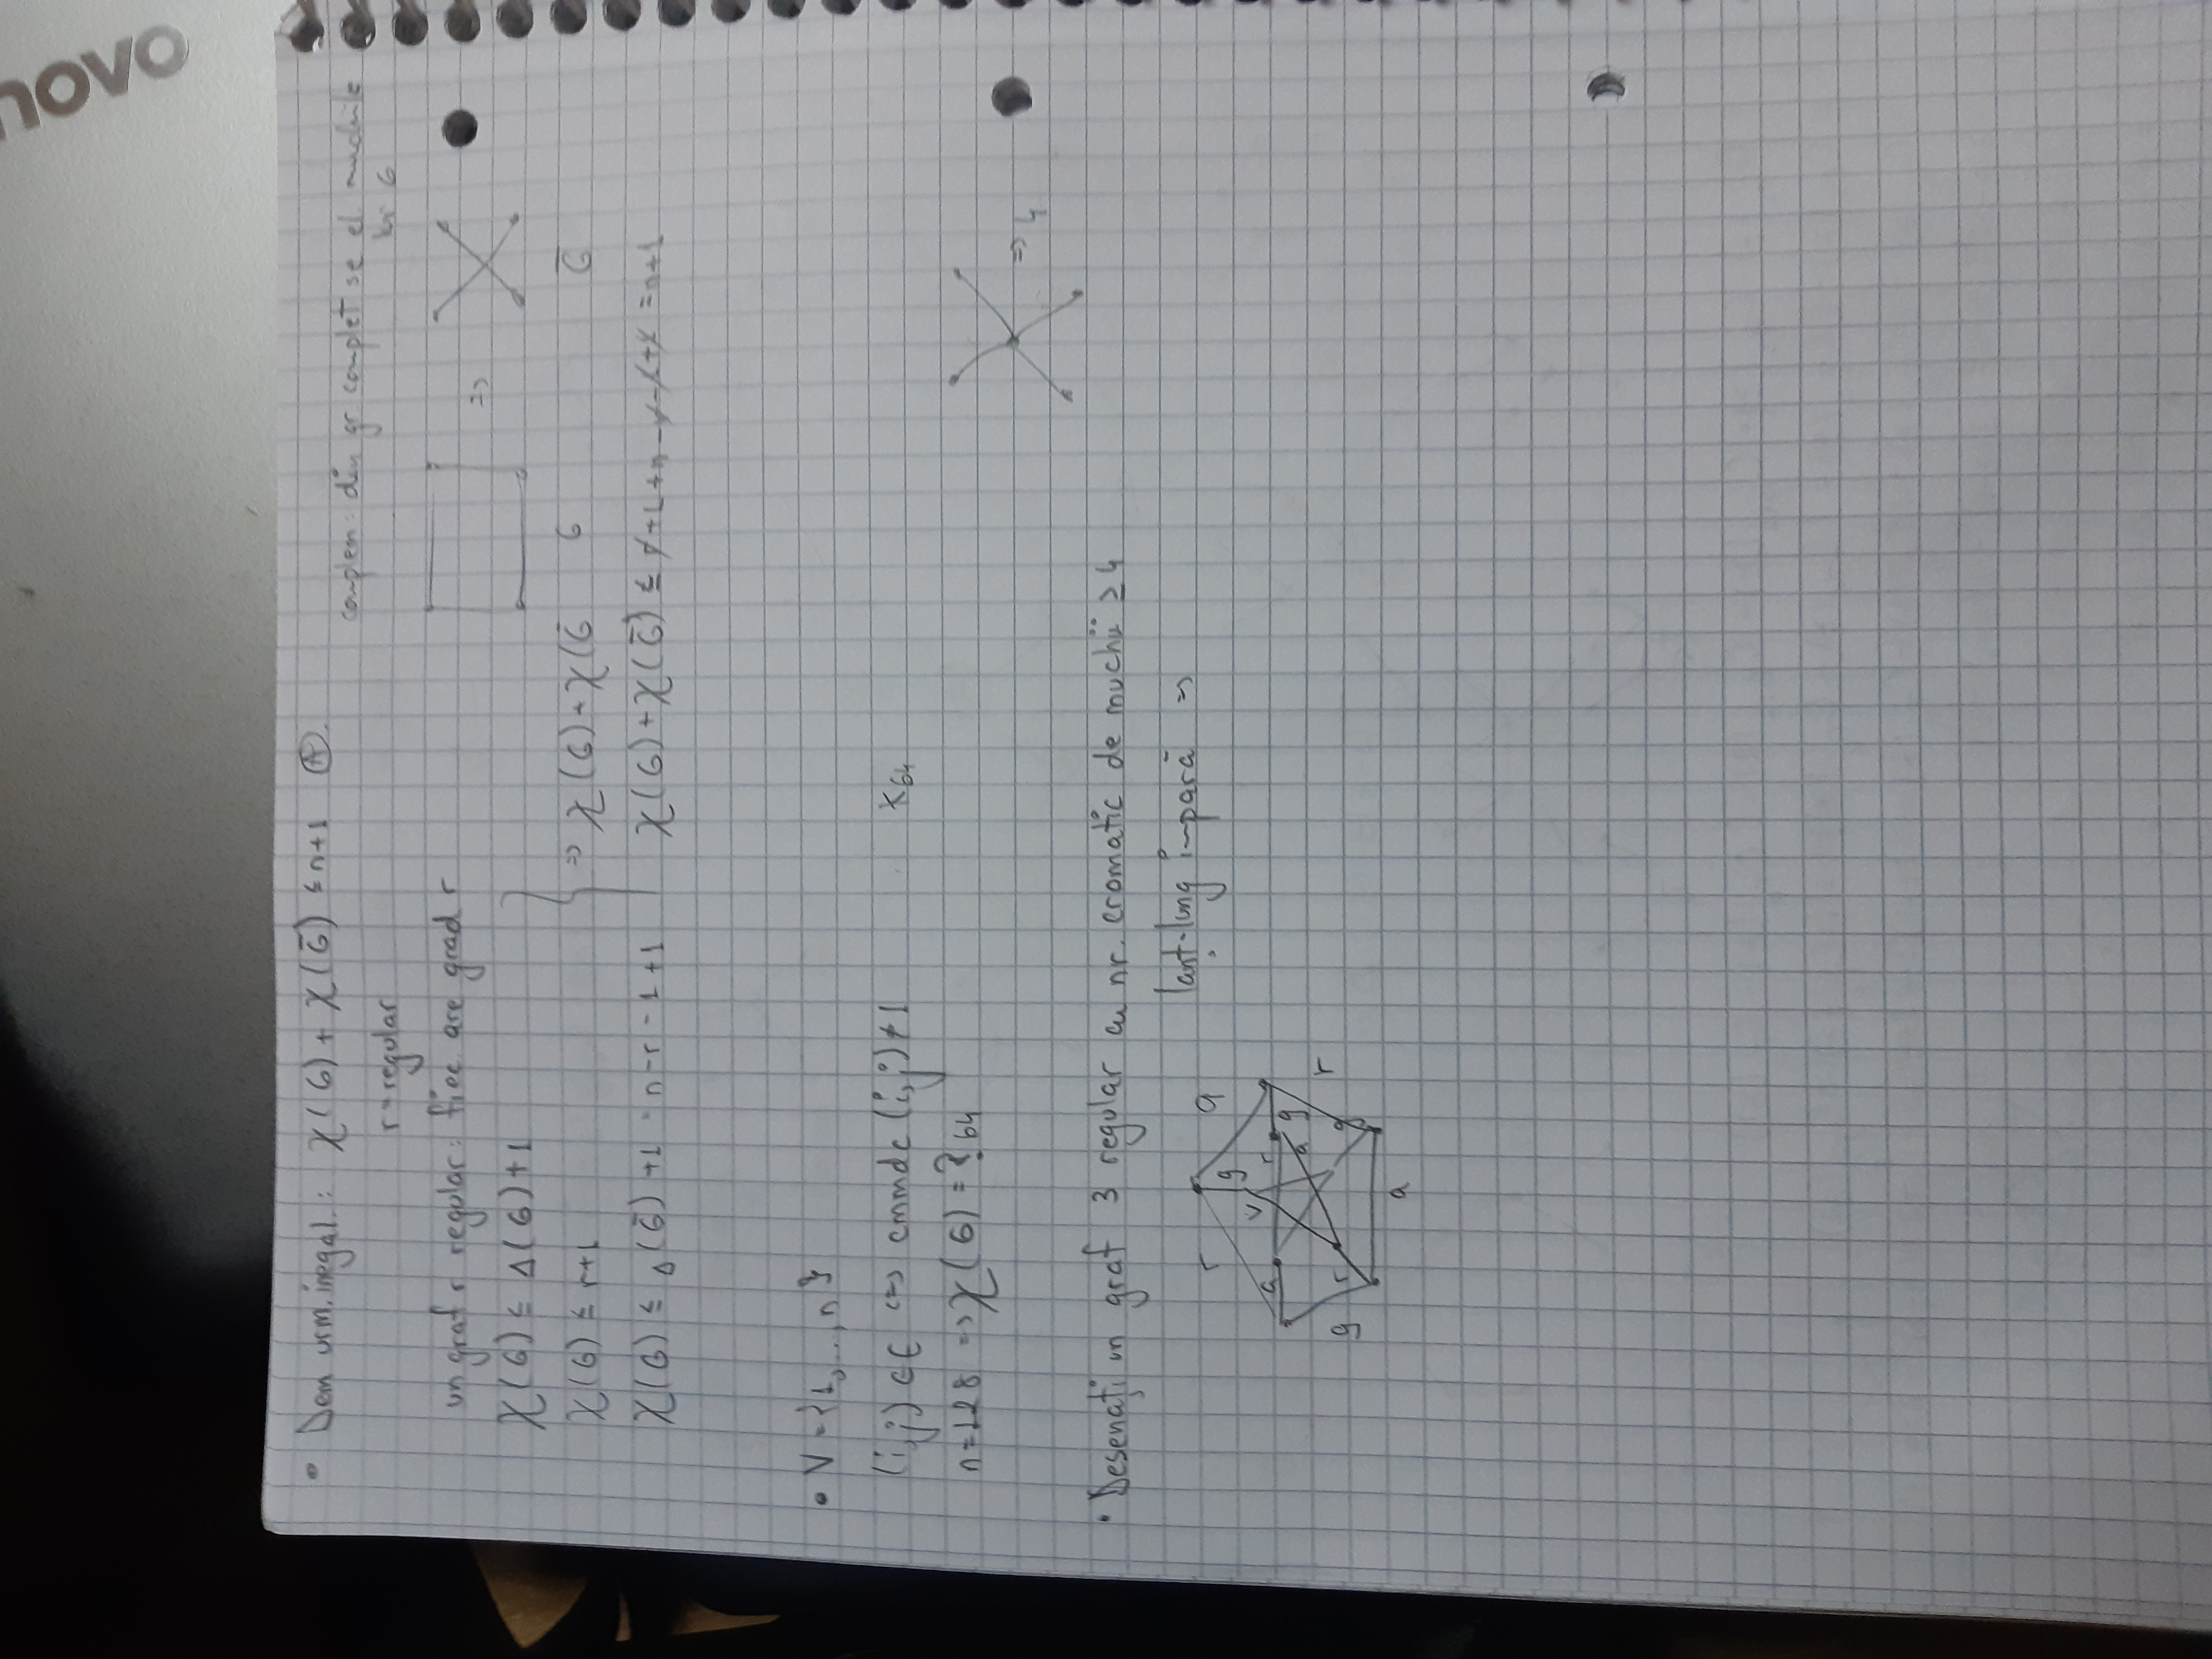 novo
• Dem urm. inegal.: χ(G) + χ(G̅) ≤ n+1 Ⓐ.
complem: din gr. complet se el. muchiile
lui G
r-regular
un graf r regular: fiec. are grad r
χ(G) ≤ Δ(G)+1
=>
χ(G) ≤ r+1
=> χ(G) + χ(G̅
G
G̅
χ(G) ≤ Δ(G̅) +1 = n-r-1+1
χ(G)+χ(G̅) ≤ r+1+n-r-1+1 = n+1
• V = {1, ..., n}
(i,j) ∈ E <=> cmmdc (i,j) ≠ 1
K64
n=128 => χ(G) = ? 64
=> 4
• Desenați un graf 3 regular cu nr. cromatic de muchii ≥ 4
lanț-lung impară =>
r
a
g
v
a
r
a
g
g
r
g
r
a